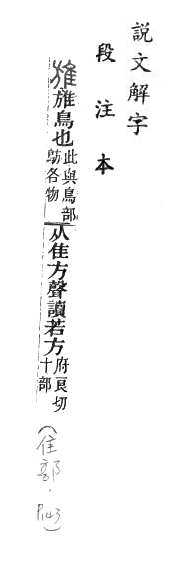 説文解字
段注本
䧃䧃鳥也此與鳥部鶭各物从隹方聲讀若方府良切十部
(隹部.P143)